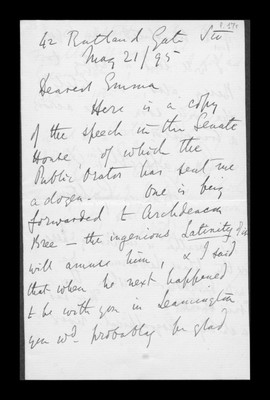 42 Rutland Gate SW
May 21/95
Dearest Emma
Here is a copy
of the speech in the Senate
House, of which the
Public Orator has sent me
a dozen. One is being
forwarded to Archdeacon
Bree — the ingenious Latinity
will amuse him, & I said
that when he next happened
to be with you in Leamington
you wd probably be glad